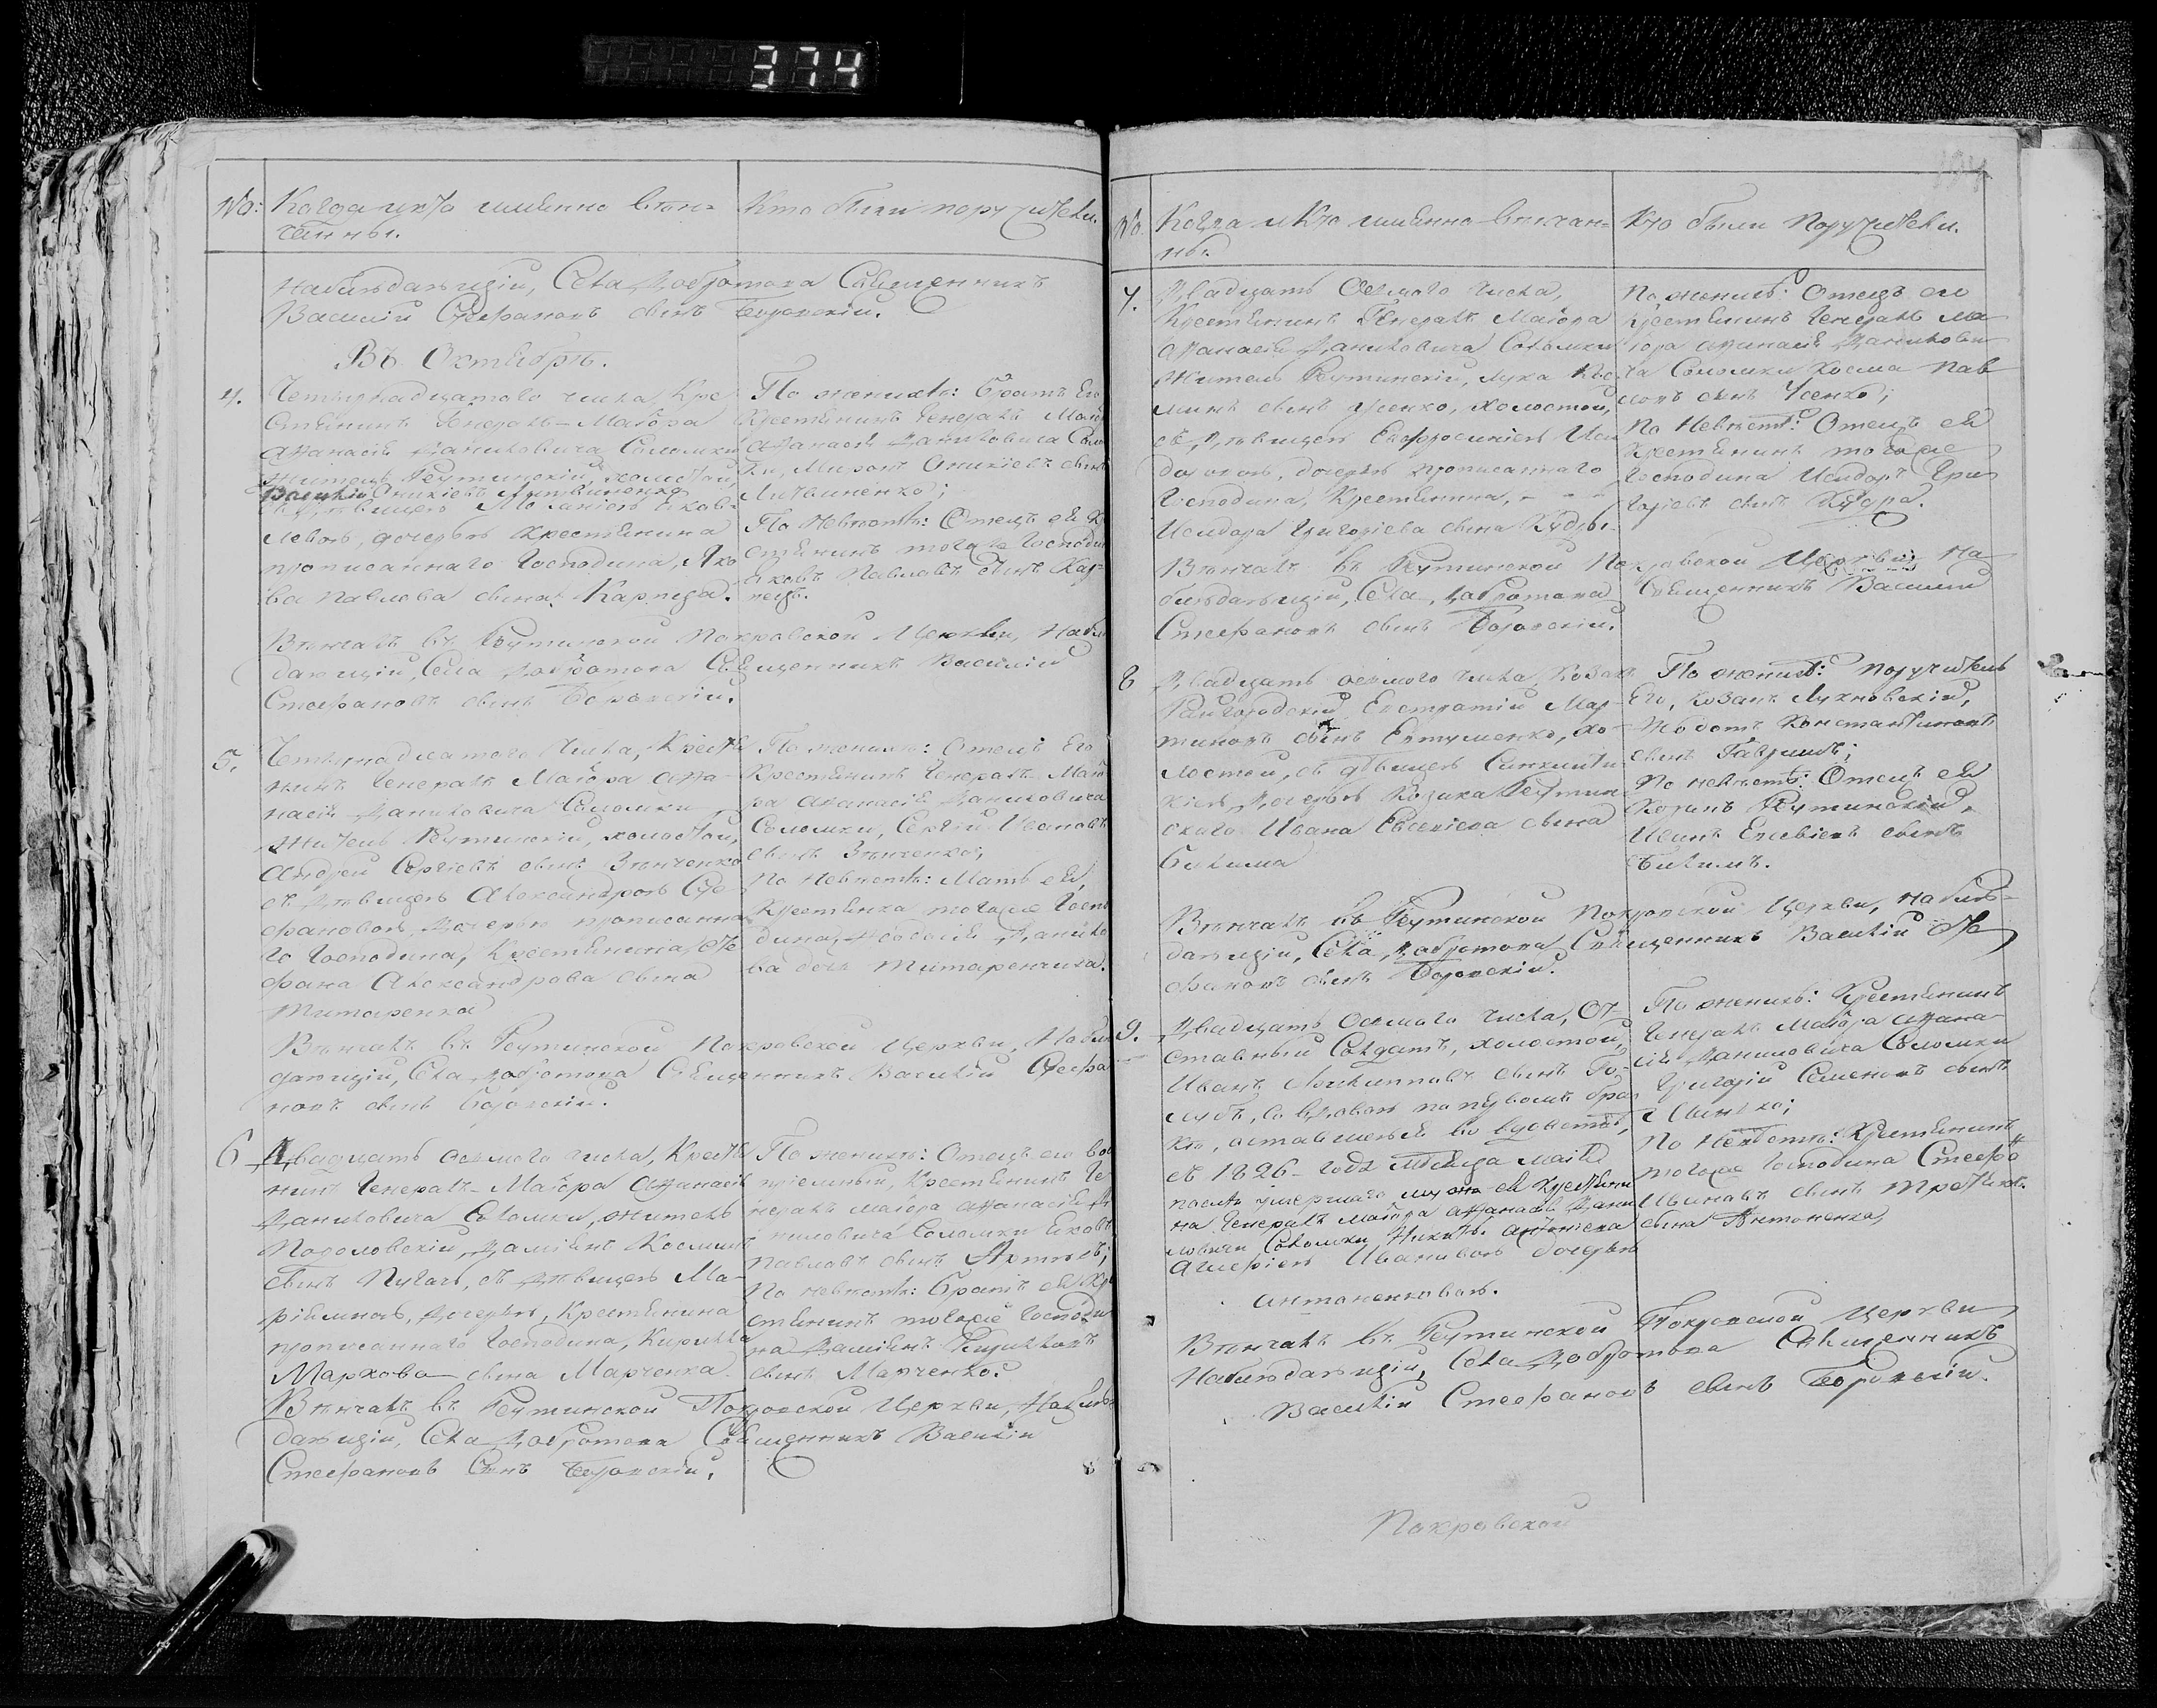 374
No: Когда и кто именно вѣн=
чанны.
Кто были поручители.
наблюдающій, Села Добротова Священникъ
Василій Стефановъ сынъ Боровскій.
Въ Октябрѣ.
4. Четырнадцатого числа, Кре
стянинъ Генералъ-Маіора
Афанасія Даниловича Соломки
житель Реутинскій, холостой,
Василій Оникіевъ Литвиненко
съ дѣвицею Яков=
левою, дочерью Крестянина
прописаннаго Господина, Яко
ва Павлова сына Карпеца.
По женихѣ: Братъ Его
Крестянинъ Генералъ Маіо
Афанасія Даниловича Соло
ки, Миронъ Оникіевъ сынъ
Литвиненко;
По Невѣстѣ: Отецъ ея К
стянинъ тогоже Господи
Яковъ Павловъ сынъ Кар=
пецъ.
Вѣнчалъ въ Реутинской Покровской Церкви, Наблю
дающій, Села Добротова Священникъ Василій
Стефановъ сынъ Боровскій.
5. Четырнадцатого Числа, Крестя
нинъ Генералъ Маіора Афа-
насія Даниловича Соломки
житель Реутинскій, холостой,
Андрей Сергіевъ сынъ Вѣнченко
съ дѣвицею Александрою Сте-
фановою, дочерью прописанна
го Господина, Крестянина, Сте
фана Александрова сына
Титаренка
По женихѣ: Отецъ Его
Крестянинъ Генералъ Маіо
ра Афанасія Даниловича
Соломки, Сергій Ивановъ
сынъ Вѣнченко;
По Невѣстѣ: Мать ея,
Крестянка тогоже Госпо
дина, Феодосія Данило
ва дочь Титаренкова.
Вѣнчалъ въ Реутинской Покровской Церкви, Наблю
дающій, Села Добротова Священникъ Василій Стефа
новъ сынъ Боровскій.
6 Двадцать осьмого числа, Крестя
нинъ Генералъ-Маіора Афанасія
Даниловича Соломки, житель
Даміянъ Косминъ
сынъ Пугачь, съ дѣвицею Ма-
дочерью, Крестянина
прописаннаго Господина, Кирилла
Маркова сына Марченка
По женихѣ: Отецъ его во
пріемный, Крестянинъ Ге
нералъ Маіора Афанасія Да
ниловича Соломки Яковъ
Павловъ сынъ
По невѣстѣ: Братъ ея Кре
стянинъ тогоже Господи
на Даміянъ Кирилловъ
сынъ Марченко.
Вѣнчалъ въ Реутинской Покровской Церкви, Наблю
дающій, Села Добротова Священникъ Василій
Стефановъ Сынъ Боровскій.
No. Когда и Кто именно вѣнчан=
ны.
Кто были Поручители.
7. Двадцать Осьмого числа,
Крестянинъ Генералъ Маіора
Афанасія Даниловича Соломки
житель Реутинскій, Лука Кос
минъ сынъ Усенко, холостой,
съ дѣвицею Евфросиніею Иси
доровою, дочерью прописаннаго
Господина, Крестянина,
Исидора Григоріева сына Кудры.
По женихѣ: Отецъ его
Крестянинъ Генералъ Ма
іора Афанасія Данилови
ча Соломки Косма Пав
ловъ сынъ Усенко;
По Невѣстѣ: Отецъ ея
Крестянинъ тогоже
Господина Исидоръ Гри
горіевъ сынъ Кудра.
Вѣнчалъ въ Реутинской Покровской Церкви, На
блюдающій, Села Добротова Священникъ Василій
Стефановъ сынъ Боровскій.
8 Двадцать осьмого числа, Козакъ
Райгородскій, Евстратій Мар-
тиновъ сынъ Евтушенко, хо-
лостой, съ дѣвицею Синклити
кіею, дочерью Козака Реутин
ского Ивана Евсевіева сына
По женихѣ: Поручитель
Его, Козакъ Лукновскій,
Федотъ Константиновъ
сынъ Гавришъ;
По невѣстѣ: Отецъ ея
Козакъ Реутинскій,
Иванъ Евсевіевъ сынъ
Вѣнчалъ въ Реутинской Покровской Церкви, наблю-
дающій, Села, Добротова Священникъ Василій Сте
фановъ сынъ Боровскій.
9. Двадцать Осьмого числа, От-
ставный Солдатъ, холостой,
Иванъ Филипповъ сынъ Го-
лубъ, со вдовою по первомъ бра
кѣ, оставшеюся во вдовствѣ,
съ 1826 года Мѣсяца Маія
послѣ умершаго мужа ея Крестяни
на Генералъ Маіора Афанасія Дани
ловича Соломки Никиты Антоніева
Ивановою дочерью
Антоненковою.
По женихѣ: Крестянинъ
Генералъ Маіора Афана-
сія Даниловича Соломки
Григорій Семеновъ сынъ
По Невѣстѣ: Крестянинъ
тогоже Господина Стефа
Ивановъ сынъ
сына Антоненка,
Вѣнчалъ въ Реутинской Покровской Церкви,
Наблюдающій, Села Добротова Священникъ
Василій Стефановъ сынъ Боровскій.
Покровской